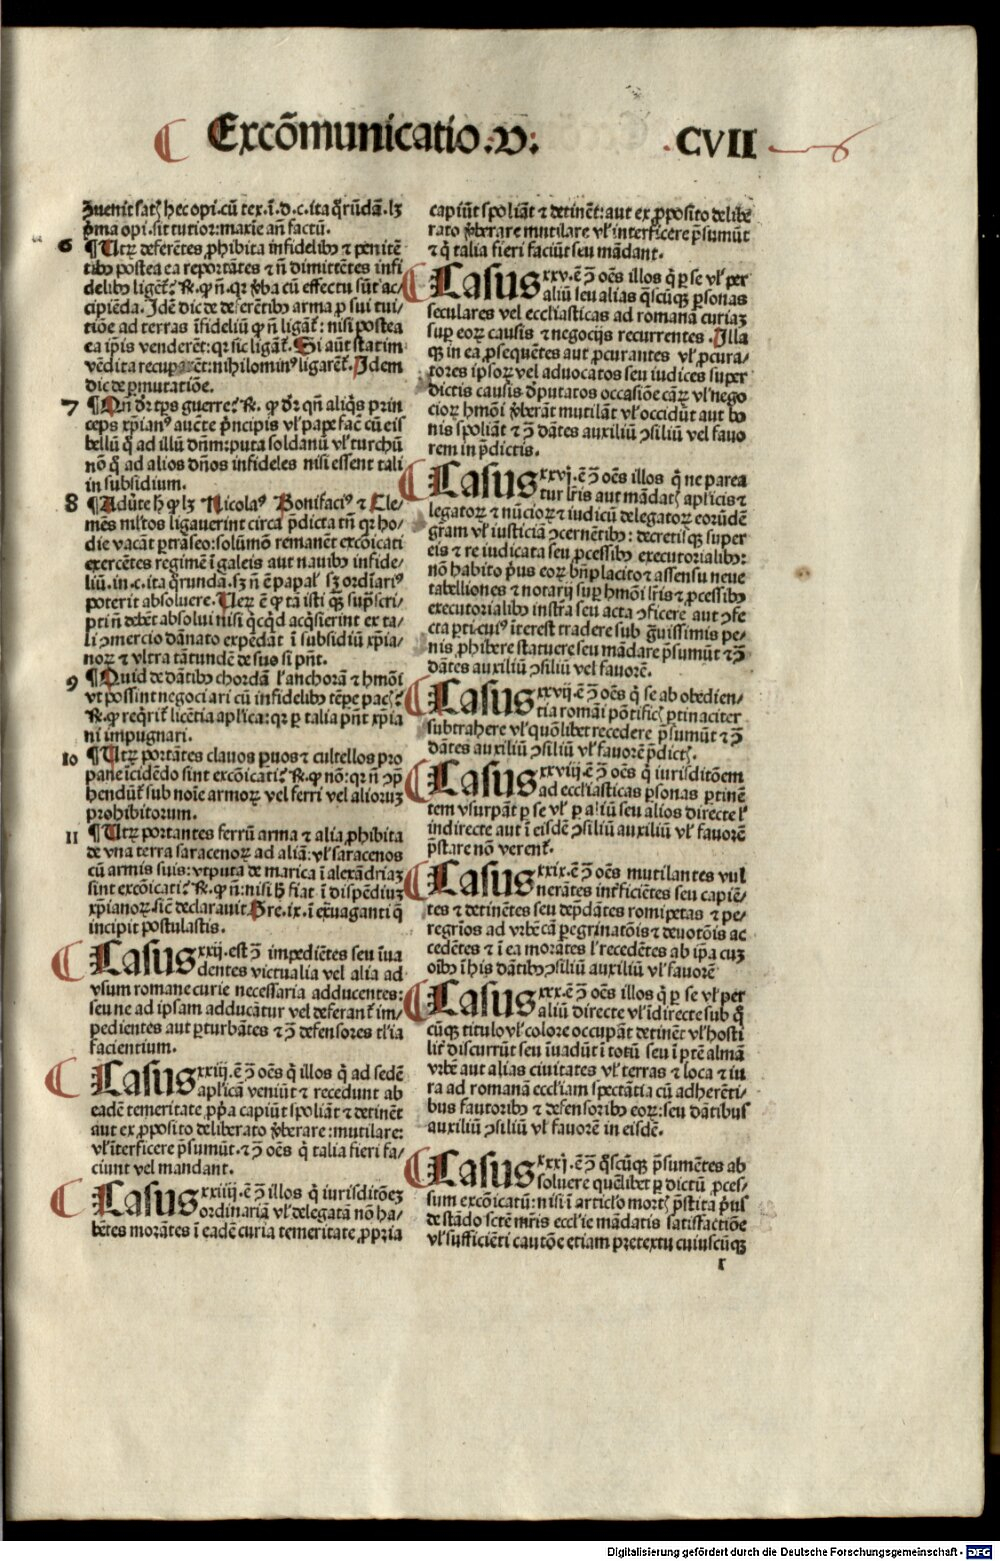 Excōmunicatio .V:
CVII
Inuenit satꝭ hec opi. cū tex. ī. d. c. ita q̄rūdā. lꝫ
p̄ma opi. sit tutior: maxīe añ factū.
6 ¶ Utrꝫ deferētes ꝓhibita infidelibꝰ ⁊ penitē
tibꝰ postea ea reportātes ⁊ ñ dimittētes infi
delibꝰ ligēt̄? R̄. ꝙ ñ. qꝛ v̓ba cū effectu sūt ac⸗
cipiēda. Idē dic de deferētibꝰ arma ꝓ sui tui⸗
tiōe ad terras īfideliū ꝙ ñ ligāt̄: nisi postea
ea ip̄is venderēt: qꝛ sic ligāt̄. Si aūt statim
vēdita recuperēt: nihilominꝰ ligarēt̄. Idem
dic de ꝑmutatiōe.
7 ¶ Qñ dr̄ tꝑs guerre? R̄. ꝙ dr̄ qñ aliq̄s prin
ceps xp̄ianꝰ aucte p̄ncipis vl̓ pape fac̄ cū eis
bellū q̄ ad illū dñm: puta soldanū vl̓ turchū
nō q̄ ad alios dños infideles nisi essent tali
in subsidium.
8 ¶ Adu̓te hꝰ ꝙ lꝫ Nicolaꝰ Bonifaciꝰ ⁊ Cle⸗
mēs ml̓tos ligauerint circa p̄dicta tñ qꝛ ho⸗
die vacāt ꝑtrāseo: solūmō remanēt excōicati
exercētes regimē ī galeis aut nauibꝰ infide⸗
liū. in. c. ita q̄rundā. sꝫ ñ ē papal̓ sꝫ ordīariꝰ
poterit absoluere. Uerꝫ ē ꝙ tā isti qꝫ sup̄scri⸗
pti ñ debēt absolui nisi q̄cq̄d acq̄sierint ex ta⸗
li ꝯmercio dānato expēdāt ī subsidiū xp̄ia⸗
noꝝ ⁊ vltra tātundē de suo si p̄nt.
9 ¶ Quid de dātibꝰ chordā l̓ anchorā ⁊ hmōi
vt possint negociari cū infidelibꝰ tēꝑe pacꝭ?
R̄. ꝙ reqrit̄ licētia apl̓ica: qꝛ ꝑ talia p̄nt xp̄ia
ni impugnari.
10 ¶ Utrꝫ portātes clauos puos ⁊ cultellos pro
pane īcidēdo sint excōicati? R̄. ꝙ nō: qꝛ ñ ꝯp̄
hendūt̄ sub noīe armoꝝ vel ferri vel aliorum
prohibitorum.
11 ¶ Utrꝫ portantes ferrū arma ⁊ alia ꝓhibita
de vna terra saracenoꝝ ad aliā: vl̓ saracenos
cū armis suis: vtputa de marica ī alexādriaꝫ
sint excōicati? R̄. ꝙ ñ: nisi hꝰ fiat ī dispēdiuꝫ
xp̄ianoꝝ. sic̄ declarauit Gre. ix. ī ex̄uaganti q̄
incipit postulastis.
Casus xxij. est ꝫ impediētes seu īua
dentes victualia vel alia ad
vsum romane curie necessaria adducentes:
seu ne ad ipsam adducātur vel deferant̄ im⸗
pedientes aut ꝑturbātes ⁊ ꝫ defensores tl̓ia
facientium.
Casus xxiij. ē ꝫ oēs q̄ illos q̄ ad sedē
apl̓icā veniūt ⁊ recedunt ab
eadē temeritate ꝓp̄a capiūt spoliāt ⁊ detinēt
aut ex ꝓposito deliberato v̓berare: mutilare:
vl̓ īterficere p̄sumūt. ⁊ ꝫ oēs q̄ talia fieri fa⸗
ciunt vel mandant.
Casus xxiiij. ē ꝫ illos q̄ iurisditōeꝫ
ordinariā vl̓ delegatā nō ha⸗
bētes morātes ī eadē curia temeritate ꝓpria
capiūt spoliāt ⁊ detinēt: aut ex ꝓposito delibe
rato v̓berare mutilare vl̓ interficere p̄sumūt
⁊ q̄ talia fieri faciūt seu mādant.
Casus xxv. ē ꝫ oēs illos q̄ ꝑ se vl̓ per
aliū seu alias q̄scūqꝫ ꝑsonas
seculares vel eccl̓iasticas ad romanā curiaꝫ
suꝑ eoꝝ causis ⁊ negocijs recurrentes. Illa
qꝫ in ea ꝓsequētes aut ꝓcurantes vl̓ ꝓcura⸗
tores ipsoꝝ vel aduocatos seu iudices super
dictis causis d̄putatos occasiōe caꝝ vl̓ nego
cioꝝ hmōi v̓berāt mutilāt vl̓ occidūt aut bo
nis spoliāt ⁊ ꝫ dātes auxiliū ꝯsiliū vel fauo
rem in p̄dictis.
Casus xxvj. ē ꝫ oēs illos q̄ ne parea
tur lr̄is aut mādatꝭ apl̓icis ⁊
legatoꝝ ⁊ nūcioꝝ ⁊ iudicū delegatoꝝ eorūdē
gr̄am vl̓ iusticiā ꝯcernētibꝰ: decretisqꝫ super
eis ⁊ re iudicata seu ꝓcessibꝰ executorialibꝰ:
nō habito p̄us eoꝝ bn̄placito ⁊ assensu neue
tabelliones ⁊ notarij suꝑ hmōi lr̄is ⁊ ꝓcessibꝰ
executorialibꝰ instr̄a seu acta ꝯficere aut ꝯfe
cta ꝑti cuiꝰ īterest tradere sub g̓uissimis pe⸗
nis ꝓhibere statuere seu mādare p̄sumūt ⁊ ꝫ
dātes auxiliū ꝯsiliū vel fauorē.
Casus xxvij. ē ꝫ oēs q̄ se ab obedien⸗
tia romāi pōtificꝭ ꝑtinaciter
subtrahere vl̓ quōlibet recedere p̄sumūt ⁊ ꝫ
dātes auxiliū ꝯsiliū vl̓ fauorē p̄dictꝭ.
Casus xxviij. ē ꝫ oēs q̄ iurisditōem
ad eccl̓iasticas ꝑsonas ꝑtinē
tem vsurpāt ꝑ se vl̓ ꝑ aliū seu alios directe l̓
indirecte aut ī eisdē ꝯsiliū auxiliū vl̓ fauorē
p̄stare nō verent̄.
Casus xxix. ē ꝫ oēs mutilantes vul
nerātes int̓ficiētes seu capiē⸗
tes ⁊ detinētes seu dep̄dātes romipetas ⁊ pe⸗
regrios ad vrbē cā ꝑegrinatōis ⁊ deuotōis ac
cedētes ⁊ ī ea morātes l̓ recedētes ab ip̄a cuꝫ
oībꝰ ī his dātibꝰ ꝯsiliū auxiliū vl̓ fauorē
Casus xxx. ē ꝫ oēs illos q̄ ꝑ se vl̓ per
aliū directe vl̓ īdirecte sub q̄
cūqꝫ titulo vl̓ colore occupāt detinēt vl̓ hosti
lit̓ discurrūt seu īuadūt ī totū seu ī ꝑtē almā
vrbē aut alias ciuitates vl̓ terras ⁊ loca ⁊ iu
ra ad romanā eccl̓iam spectātia cū adherēti⸗
bus fautoribꝰ ⁊ defensoribꝰ eoꝝ: seu dātibus
auxiliū ꝯsiliū vl̓ fauorē in eisdē.
Casus xxxj. ē ꝫ q̄scūqꝫ p̄sumētes ab
soluere quēlibet ꝑ dictū ꝓces⸗
sum excōicatū: nisi ī articl̓o mortꝭ p̄stita p̄us
de stādo sctē mr̄is eccl̓ie mādatis satisfactiōe
vl̓ sufficiēti cautōe etiam pretextu cuiuscūqꝫ
r
Digitalisierung gefördert durch die Deutsche Forschungsgemeinschaft - DFG